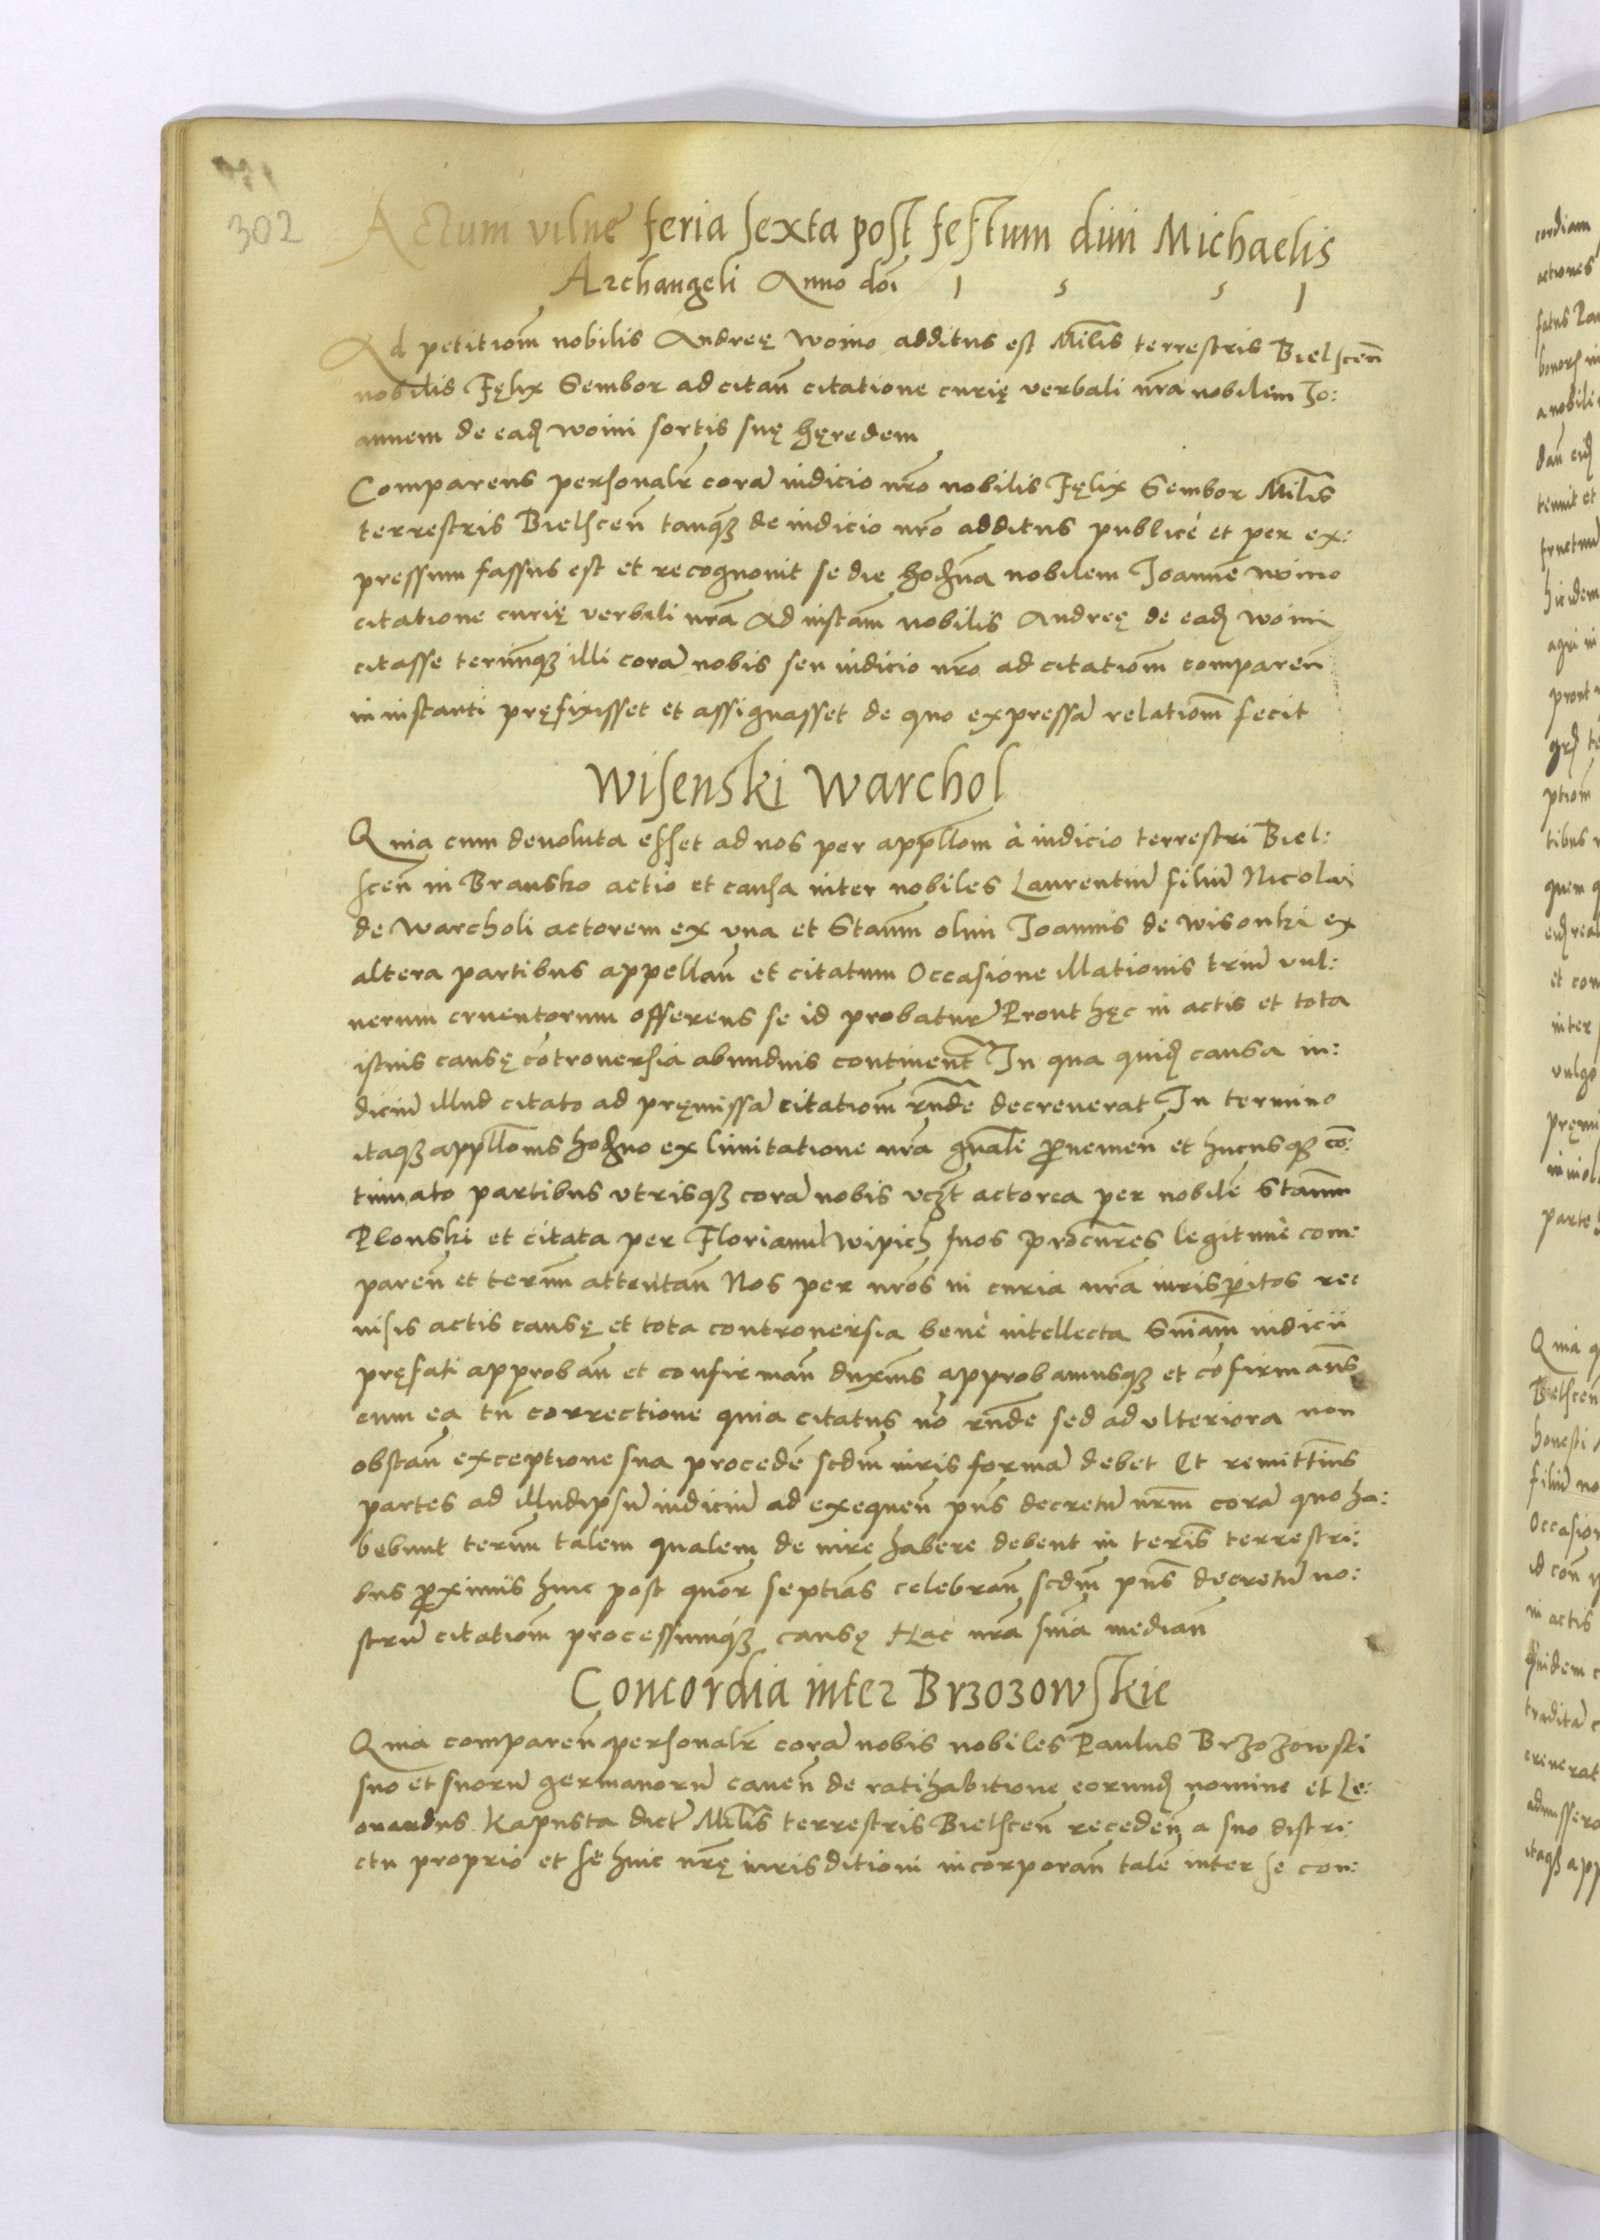 302
Actum vilne feria sexta post festum divi Michaelis
Archangeli Anno doi 1 5 5 1
Ad petitiom nobilis Andreę woino additus est Milis terrestris Bielscen
nobilis Fęlix Sembor ad citan citatione curię verbali nra nobilem Jo:
annem de ead woini sortis suę hęredem
Comparens personalr cora iudicio nro nobilis Fęlix Sembor Milis
terrestris Bielscen tanq de iudicio nro additus publicè et per ex:
pressum fassus est et recognouit se die hodna nobilem Joanne woino
citatione curię verbali nra ad instam nobilis Andreę de ead woini
citasse termumq illi cora nobis seu iudicio nro ad citatiom comparen
in instanti pręfixisset et assignasset de quo expressa relatiom fecit
Wisenski Warchol
Quia cum deuoluta esset ad nos per appltom à iudicio terrestri Biel:
scen in Bransko actio et causa inter nobiles Laurentiu filiu Nicolai
de Warcholi actorem ex vna et Stanm olim Joannis de wisonki ex
altera partibus appellan et citatum Occasione illationis triu vul:
nerum cruentorum offerens se id probatur Prout hęc in actis et tota
istius causę cotrouersia abundius continent In qua quid causa iu:
diciu illud citato ad pręmissa citatiom rnde decreuerat In termino
itaq appltonis hodno ex limitatione nra gnali prouenien et hucusq co:
tinuato partibus vtrisq cora nobis vczt actorea per nobile Stanm
Plonski et citata per Florianu Wipich suos procures legitimè com:
paren et termm attentan Nos per nros in curia nra iurisperitos re:
uisis actis causę et tota controuersia benè intellecta Sniam iudicii
pręfati approban et confirman duxims approbamusq et cofirmans
cum ea tn correctione quia citatus no rnde sed ad vlteriora non
obstan exceptione sua procede scdm iuris forma debet Et remittims
partes ad illudipsu iudiciu ad exequen pns decretu nrm cora quo ha:
bebunt termm talem qualem de iure habere debent in teris terrestri:
bus proximis huic post quor septias celebran scdm pns decretu no:
stru citatiom processumq causę Hac nra snia median
Concordia inter Brzozowskie
Quia comparen personalr cora nobis nobiles Paulus Brzozowski
suo et suoru germanoru cauen de ratihabitione eorund nomine et Le:
onardus Kapusta dict Milis terrestris Bielscen receden a suo distri
ctu proprio et se huic nrę iurisditioni incorporan tale inter se con: